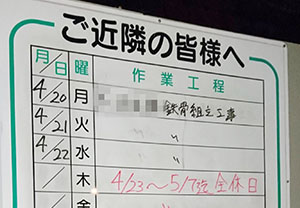 ご近隣の皆様へ
月/日 曜 作業工程
4/20 月 鉄骨組立工事
4/21 火 〃 〃
4/22 水 〃 〃
/ 木 4/23～5/7迄 全休日
/ 金